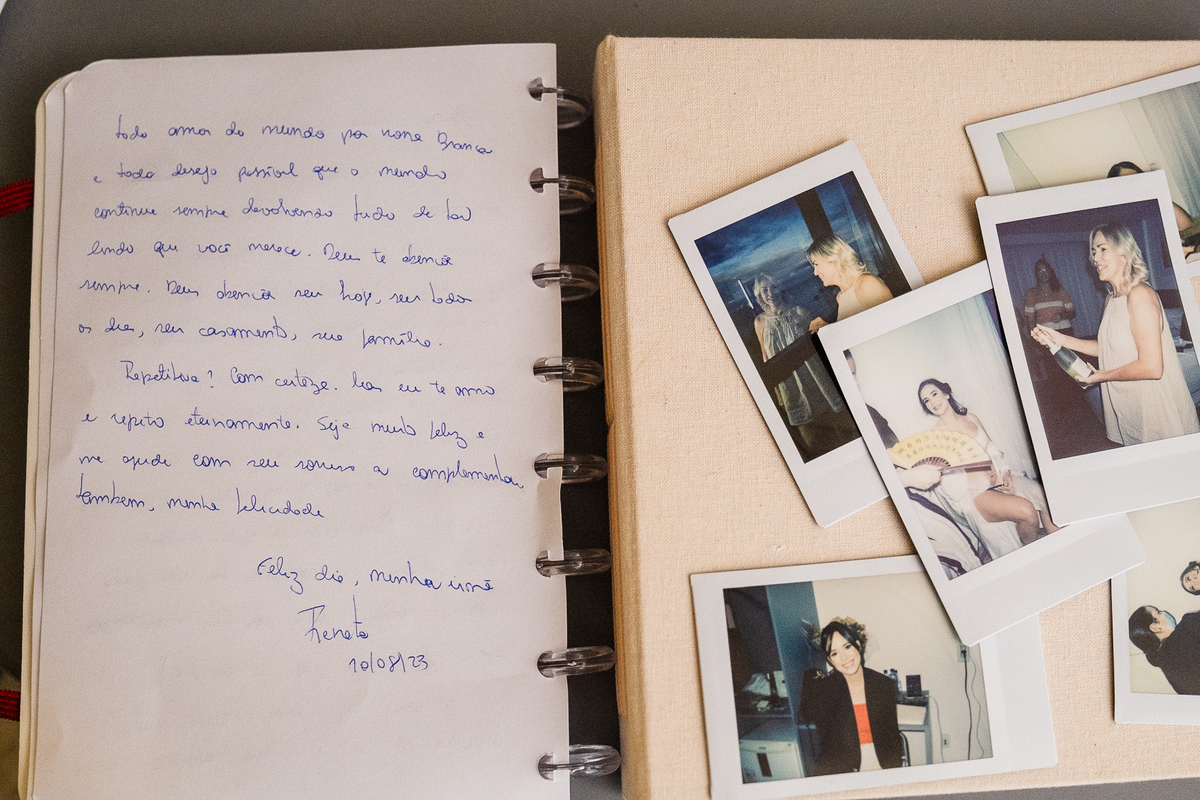 todo amor do mundo por nome Branca
e todo desejo possível que o mundo
continue sempre devolvendo tudo de tão
lindo que você merece. Deus te abençoe
sempre. Deus abençoe seu hoje, seu todos
os dias, seu casamento, sua família.
Repetitiva? Com certeza. Mas eu te amo
e repito eternamente. Seja muito feliz e
me ajude com seu sorriso a complementar,
também, minha felicidade
Feliz dia, minha irmã
Renata
10/08/23